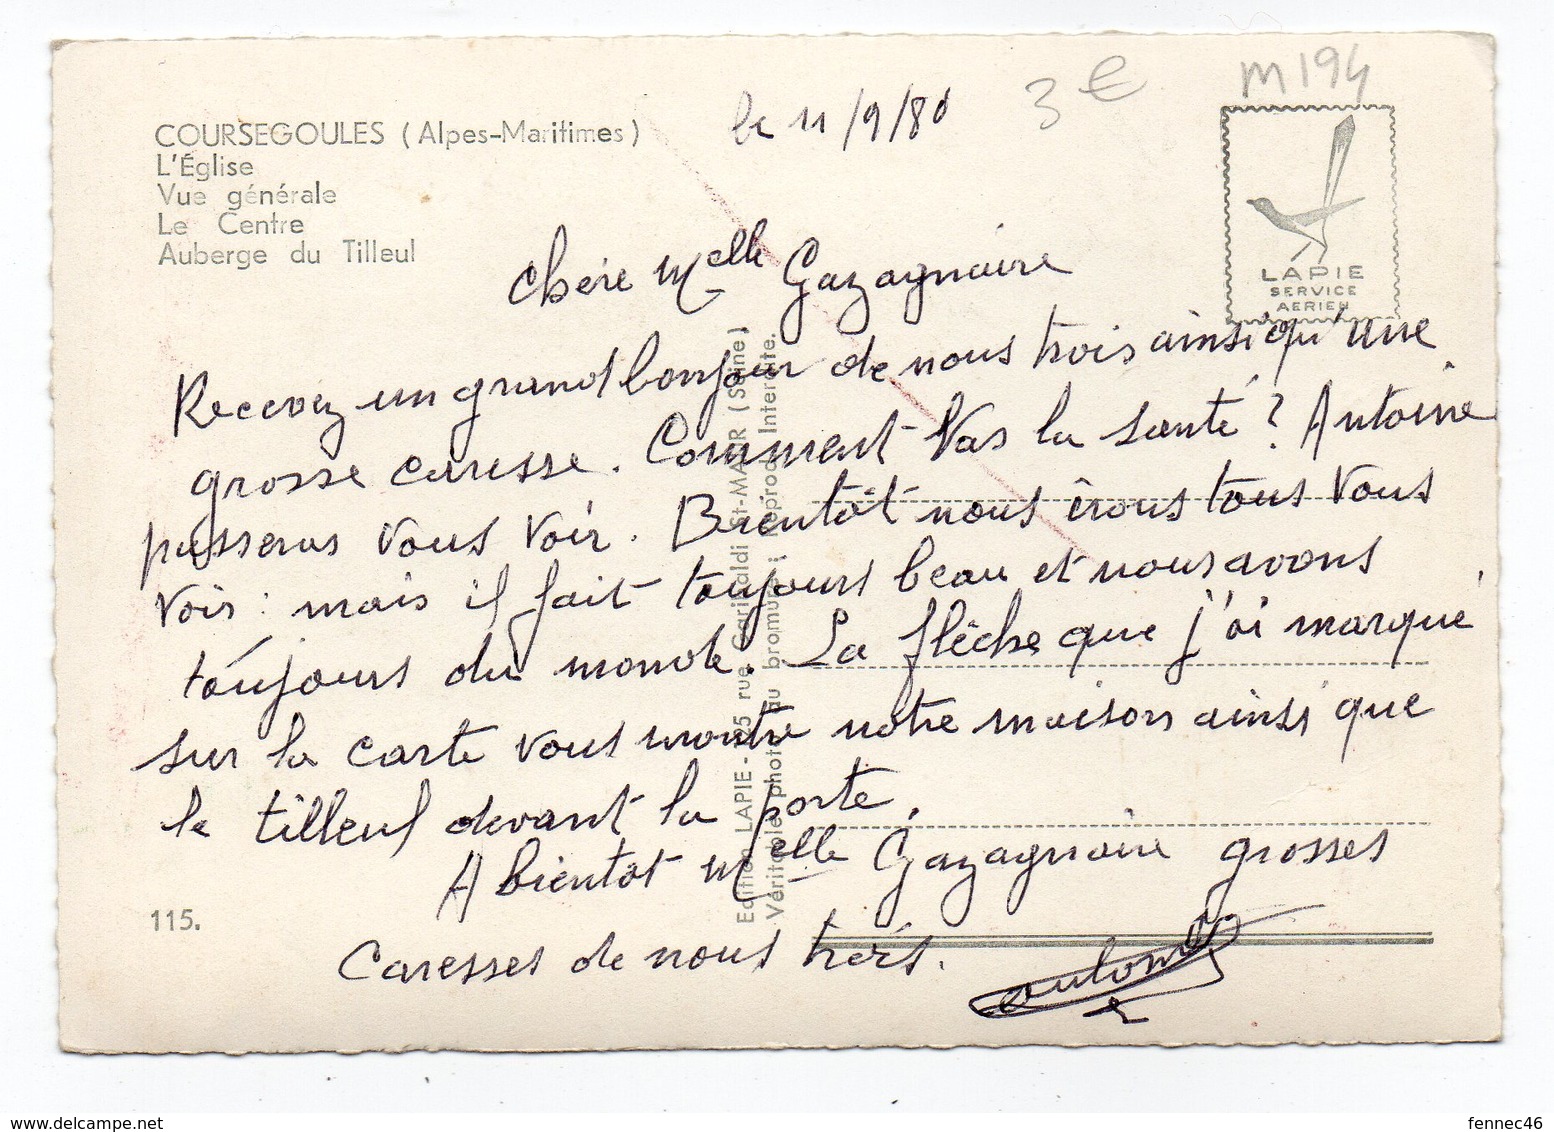 COURSEGOULES (Alpes-Maritimes)
L'Église
Vue générale
Le Centre
Auberge du Tilleul
le 11/9/80
3 €
M194
LAPIE
SERVICE
AERIEN
Chère Melle Gazagnaire
Recevez un grand bonjour de nous trois ainsi qu'une
grosse caresse. Comment Vas la santé ? Antoine
passeras vous voir. Bientôt nous irons tous Vous
Voir : mais il fait toujours beau et nous avons
toujours du monde. La flèche que j'ai marqué
sur la carte vous montre notre maison ainsi que
le tilleul devant la porte,
A bientôt Melle Gazagnaire grosses
Caresses de nous trois.
115.
Edition LAPIE - rue Garibaldi St-MAUR (Seine)
Véritable photo au bromure : Reprod. Interdite.
fennec46